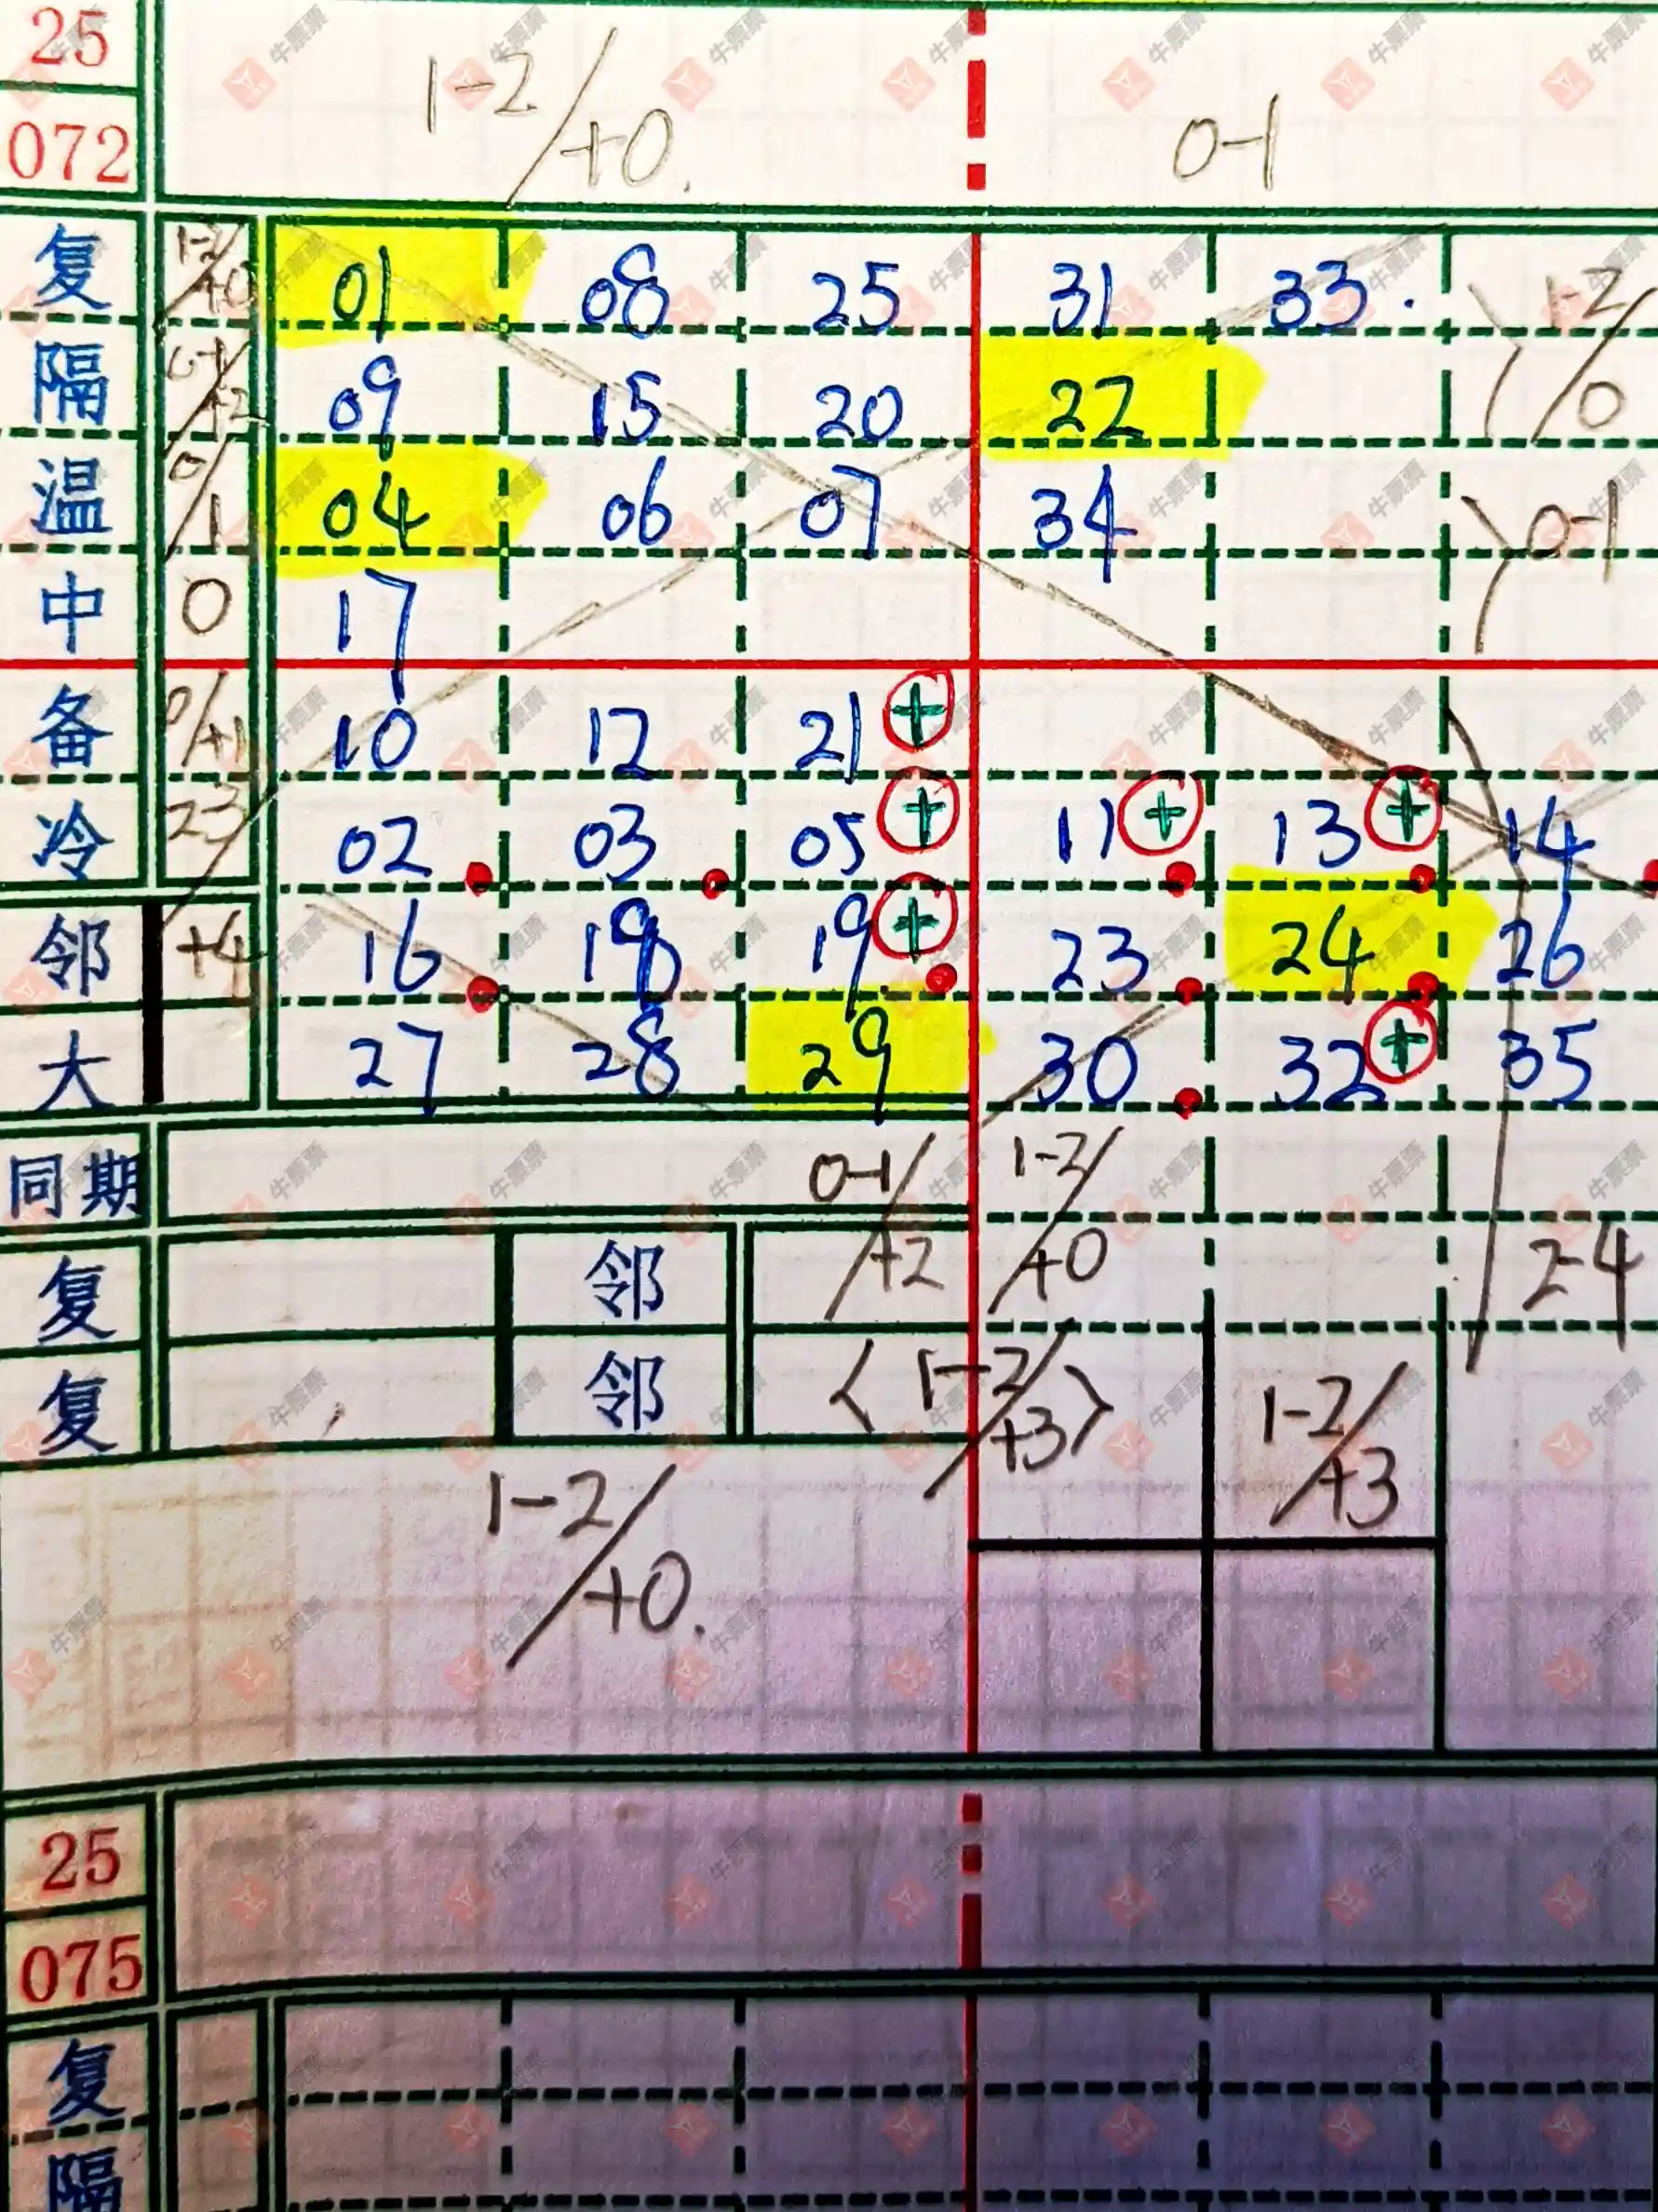 25
072 1-2/+0. 0-1
复 1-2/+0 01 08 25 31 33. 1-2/0
隔 0-1/+2 09 15 20 22
温 0/1 04 06 07 34 0-1
中 0 17
备 0/+1 10 12 21 +
冷 23 02 03 05 + 11 + 13 + 14
邻 +4 16 18 19 + 23 24 26
大 27 28 29 30 32 + 35
同期 0-1/+2 1-2/+0
复 邻 2-4
复 邻 <1-2/+3> 1-2/+3
1-2/+0.
25
075
复
隔
牛票票